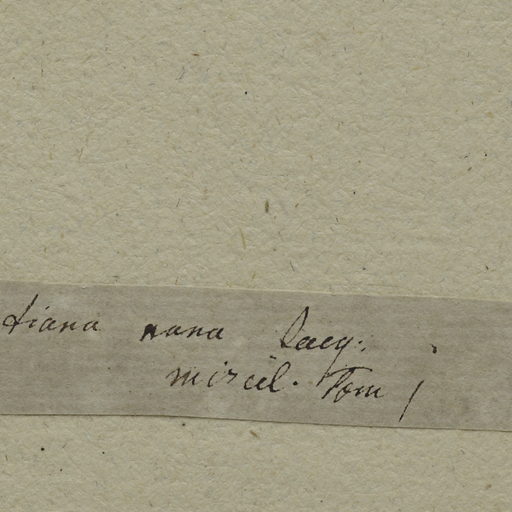 tiana nana Jacq.
miscel. Tom 1